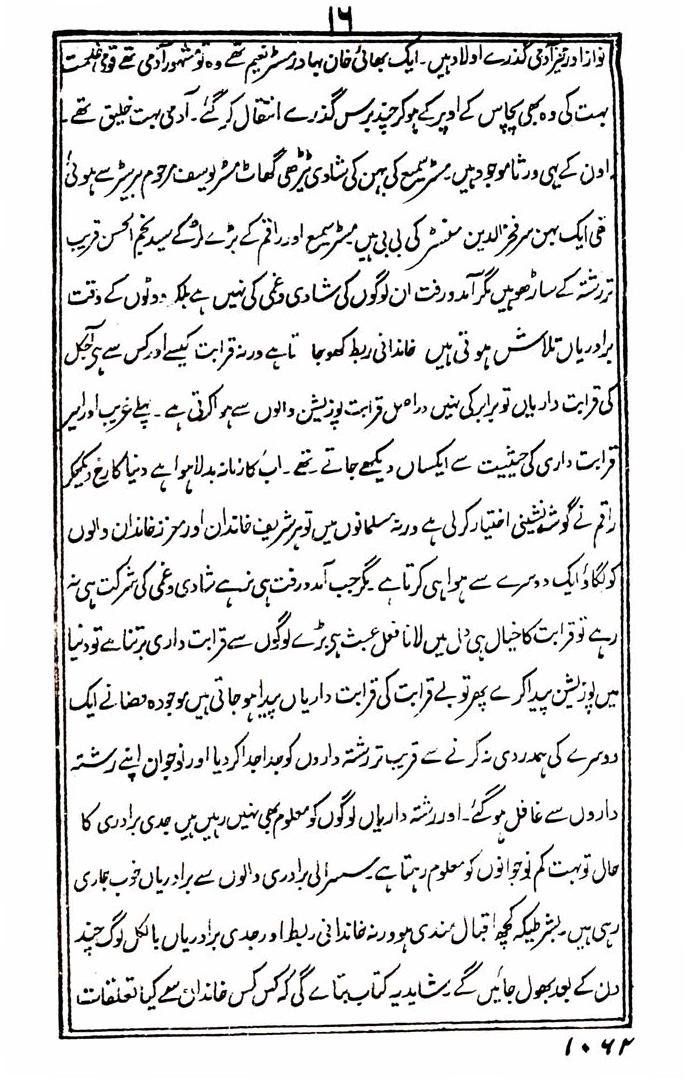 ۱۶
نواز اور نیز آدمی گذرے اولاد ہیں۔ ایک بھائی خان بہادر مسٹر نعیم تھے وہ تو مشہور آدمی تھے قومی خدمت
بہت کی وہ بھی پچاس کے اوپر کے ہوکر چند برس گذرے انتقال کر گئے۔ آدمی بہت خلیق تھے۔
اون کے یہی ورثا موجود ہیں۔ مسٹر سمیع کی بہن کی شادی ٹیڑھی گھاٹ مسٹر یوسف مرحوم بریسٹر سے ہوئی
تھی ایک بہن سر فخر الدین منسٹر کی بی بی ہیں مسٹر سمیع اور راقم کے بڑے لڑکے سید نجم الحسن قریب
تر رشتہ کے ساڑھو ہیں مگر آمدورفت ان لوگوں کی شادی وغمی کی نہیں ہے بلکہ ووٹوں کے وقت
برادریاں تلاش ہوتی ہیں خاندانی ربط کھو جاتا ہے ورنہ قرابت کیسے اور کس سے ہی آجکل
کی قرابت داریاں تو برابر کی نہیں دراصل قرابت پوزیشن والوں سے ہوا کرتی ہے۔ پہلے غریب اور امیر
قرابت داری کی حیثیت سے ایکساں دیکھے جاتے تھے۔ اب کا زمانہ بدلا ہوا ہے دنیا کا رخ دیکھکر
راقم نے گوشہ نشینی اختیار کر لی ہے ورنہ مسلمانوں میں تو ہر شریف خاندان اور معزز خاندان والوں
کو لگاؤ ایک دوسرے سے ہوا ہی کرتا ہے۔ مگر جب آمدورفت ہی نہ رہے شادی وغمی کی شرکت ہی نہ
رہے تو قرابت کا خیال ہی دل میں لانا فعل عبث ہی بڑے لوگوں سے قرابت داری برتنا ہے تو دنیا
میں پوزیشن پیدا کرے پھر تو بے قرابت کی قرابت داریاں پیدا ہو جاتی ہیں موجودہ فضا نے ایک
دوسرے کی ہمدردی نہ کرنے سے قریب تر رشتہ داروں کو جدا جدا کر دیا اور نوجوان اپنے رشتہ
داروں سے غافل ہو گئے۔ اور رشتہ داریاں لوگوں کو معلوم بھی نہیں رہیں ہیں جدی برادری کا
حال تو بہت کم نوجوانوں کو معلوم رہتا ہے۔ سسرالی برادری والوں سے برادریاں خوب جاری
رہی ہیں۔ بشرطیکہ کچھ اقبال مندی ہو ورنہ خاندانی ربط اور جدی برادریاں بالکل لوگ چند
دن کے بعد بھول جائیں گے۔ شاید یہ کتاب بتائے گی کہ کس کس خاندان سے کیا تعلقات
۱۰۶۲